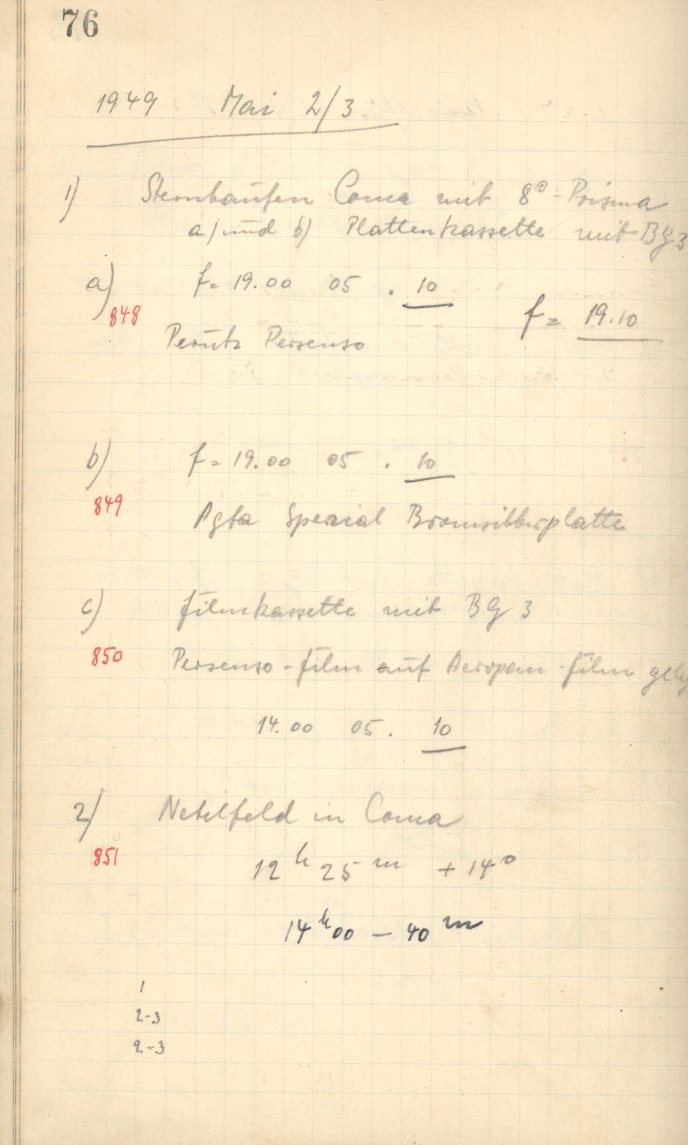 76
1949 Mai 2/3
1) Sternhaufen Coma mit 8° - Prisma
a) und b) Plattenkassette mit BG 3
a) f= 19.00 05 . 10
848
f= 19.10
Perutz Persenso
b) f= 19.00 05 . 10
849
Agfa Spezial Bromsilberplatte
c) Filmkassette mit BG 3
850 Persenso-Film auf Aeropan-Film
14.00 05. 10
2) Nebelfeld in Coma
851
12 h 25 m + 14°
14 h 00 - 40 m
1
2-3
2-3